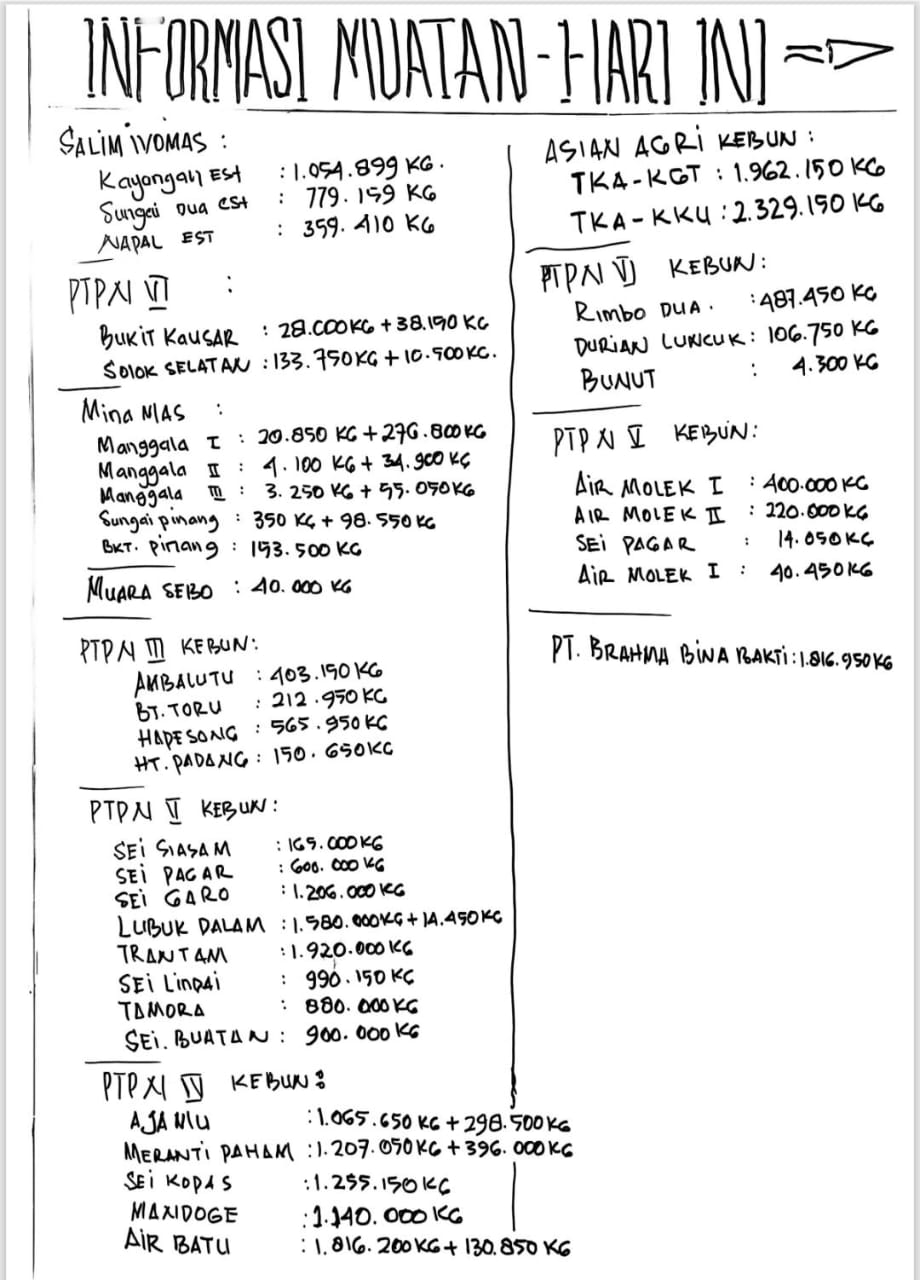 INFORMASI MUATAN-HARI INI
SALIM IVOMAS :
Kayangan EST : 1.054.899 KG.
Sungai DUA EST : 779.159 KG
NAPAL EST : 359.410 KG
PTPN VI :
BUKIT KAUSAR : 28.000KG + 38.150 KG
SOLOK SELATAN : 133.750KG + 10.500KG.
Mina MAS :
Manggala I : 20.850 KG + 276.800KG
Manggala II : 4.100 KG + 34.900 KG
Manggala III : 3.250 KG + 55.050KG
Sungai pinang : 350 KG + 98.550KG
BKT. pinang : 153.500 KG
MUARA SEBO : 40.000 KG
PTPN III KEBUN:
AMBALUTU : 403.150KG
BT.TORU : 212.950KG
HAPESONG : 565.950KG
HT.PADANG : 150.650KG
PTPN V KEBUN:
SEI SIASAM : 165.000KG
SEI PAGAR : 600.000 KG
SEI GARO : 1.206.000KG
LUBUK DALAM : 1.580.000KG + 14.450KG
TRANTAM : 1.920.000KG
SEI LINDAI : 990.150KG
TAMORA : 880.000KG
SEI. BUATAN : 900.000KG
PTPN IV KEBUN:
AJAMU : 1.065.650 KG + 298.500KG
MERANTI PAHAM : 1.207.050KG + 396.000KG
SEI KOPAS : 1.255.150KG
MANDOGE : 1.140.000KG
AIR BATU : 1.816.200KG + 130.850 KG
ASIAN AGRI KEBUN :
TKA-KGT : 1.962.150KG
TKA-KKU : 2.329.150KG
PTPN VI KEBUN:
RIMBO DUA. : 487.450KG
DURIAN LUNCUK : 106.750KG
BUNUT : 4.300KG
PTPN V KEBUN:
AIR MOLEK I : 400.000KG
AIR MOLEK II : 220.000KG
SEI PAGAR : 14.050KG
AIR MOLEK I : 40.450KG
PT. BRAHMA BINA BAKTI : 1.816.950KG